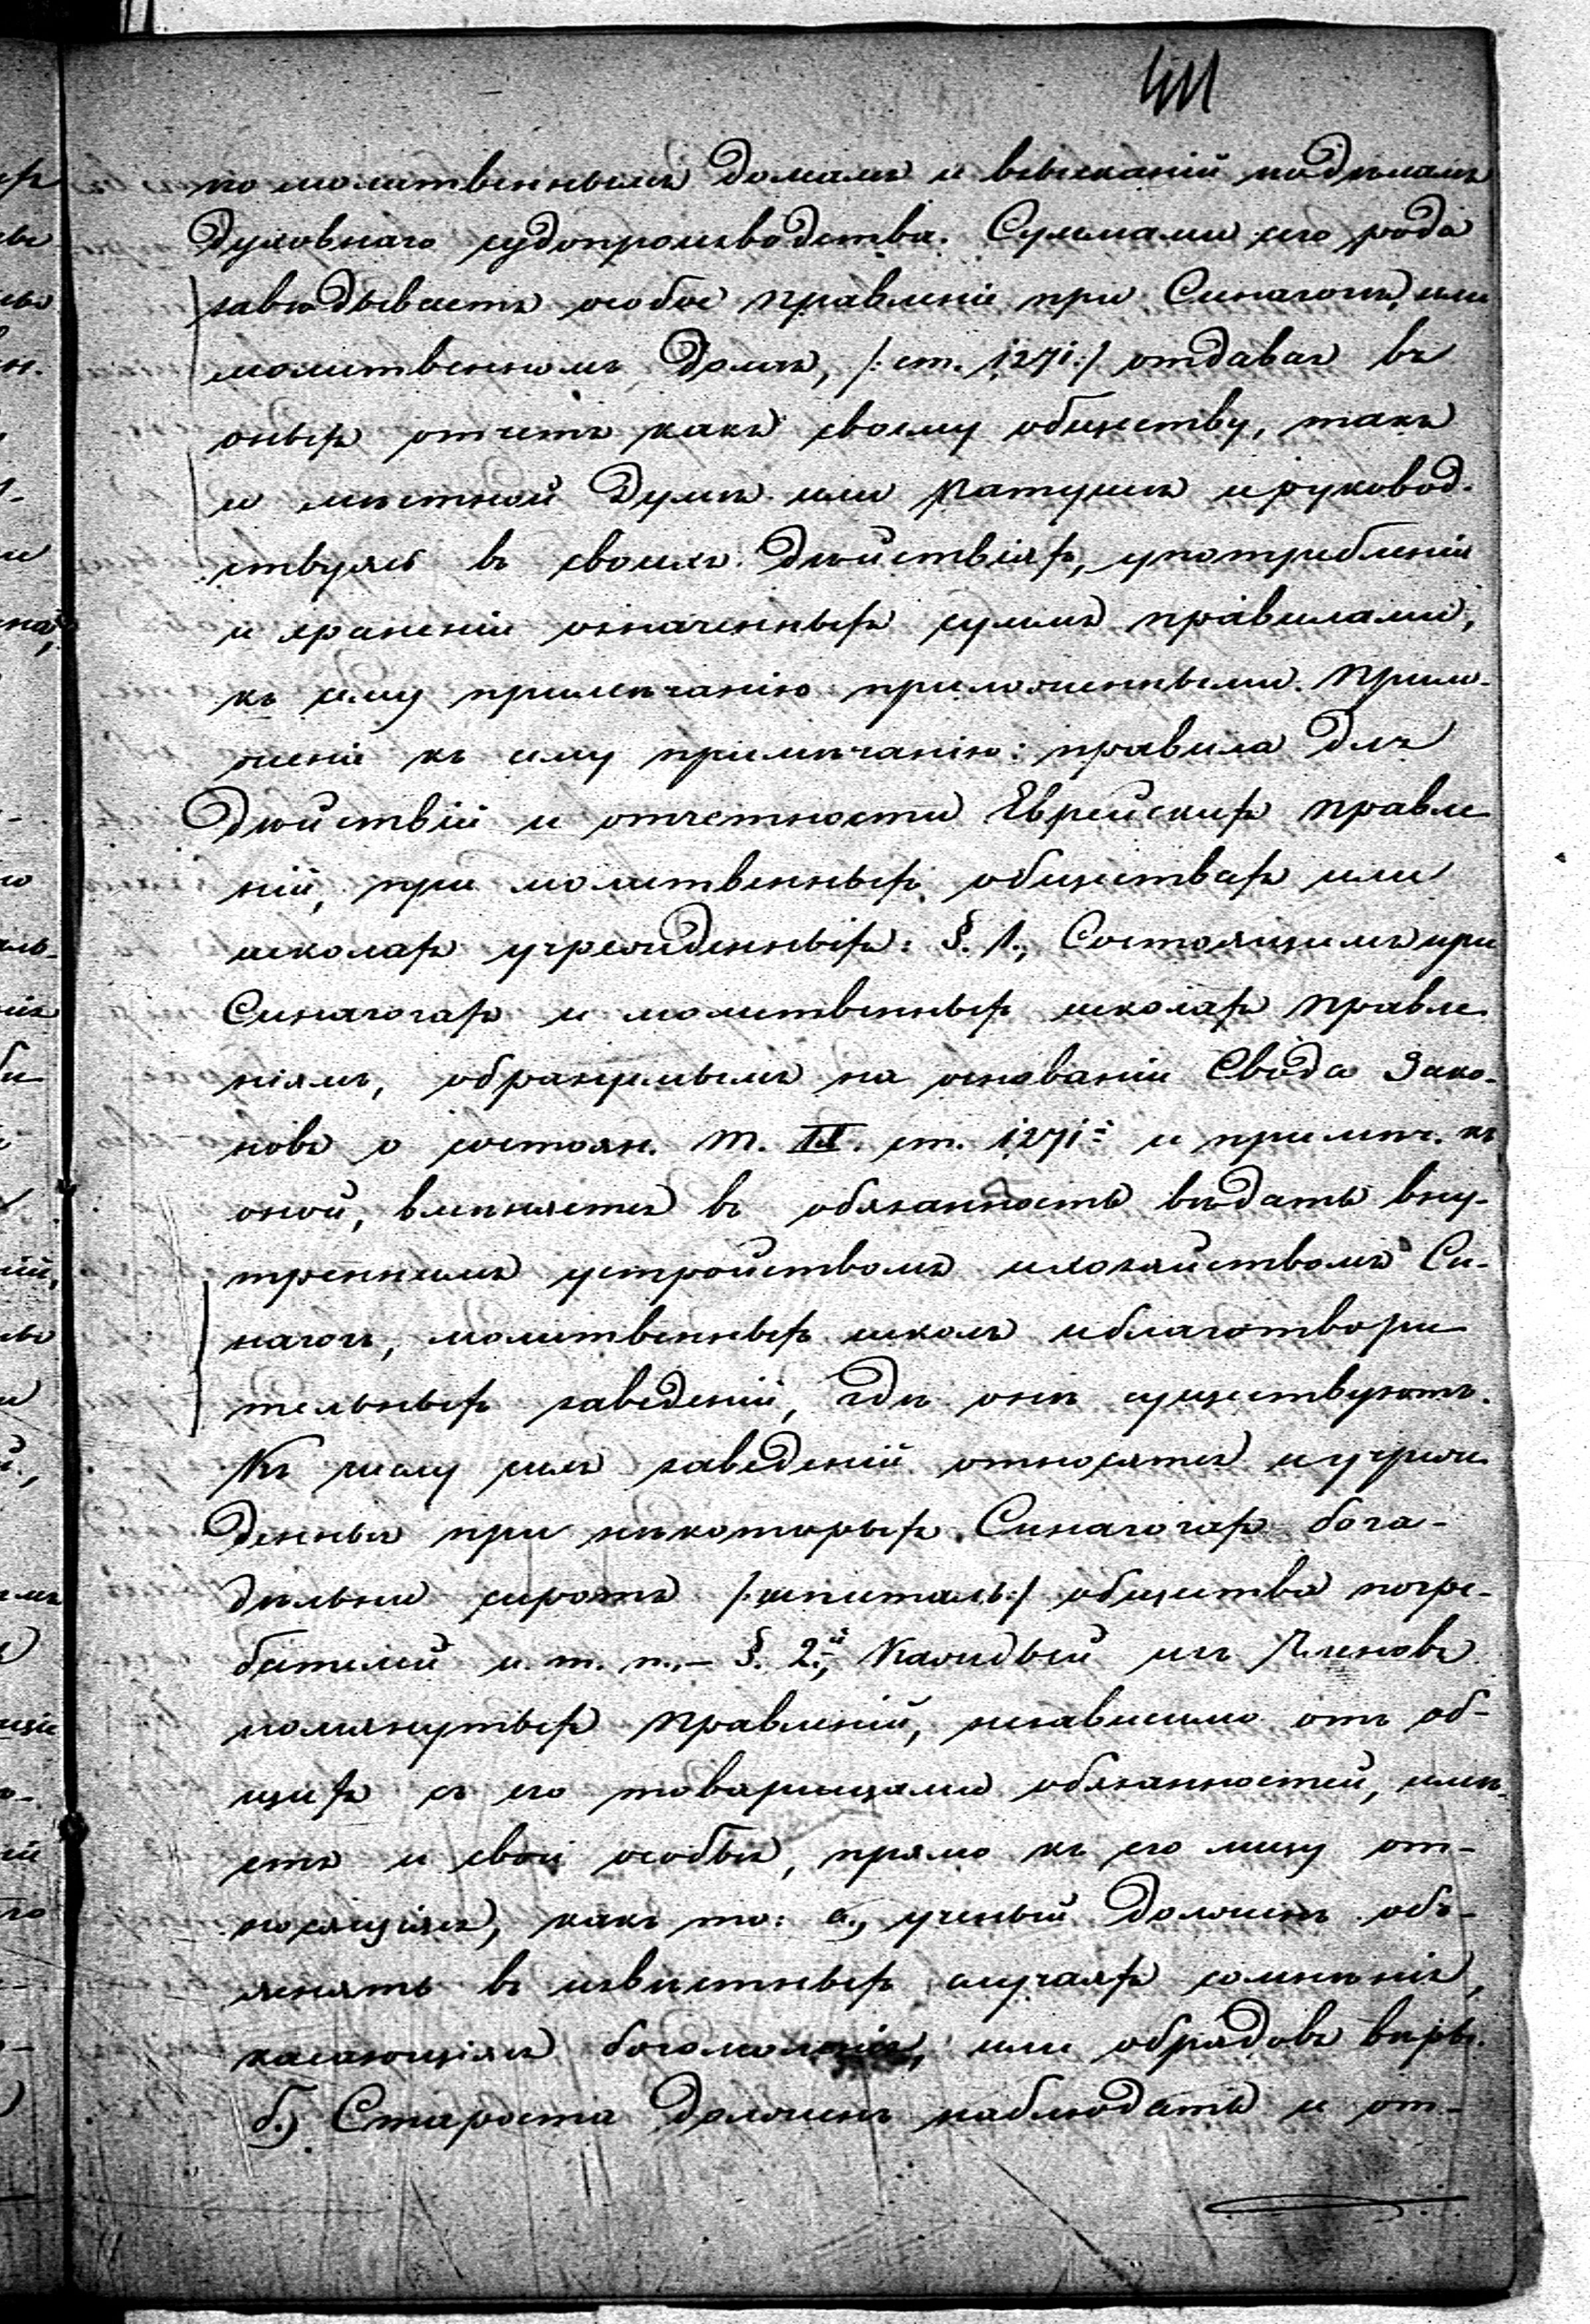 411
по молитвеннымъ домамъ и взысканій по дѣламъ
Духовнаго судопроизводства. Суммами сего рода
завѣдываетъ особое правленіе при Синагогѣ, или
молитвенномъ домѣ, /: ст. 1271 :/ отдавая въ
оныхъ отчетъ какъ своему обществу, такъ
и мѣстной Думѣ или Ратушѣ и руковод-
ствуясь въ своихъ дѣйствіяхъ, употребленія
и храненіи означенныхъ суммъ правилами,
къ сему примѣчанію приложенными. Прило-
женіе къ сему примѣчанію: правила для
Дѣйствій и отчетности Еврейскихъ правле
ній, при молитвенныхъ обществахъ или
школахъ учрежденныхъ: §. 1., Состоящимъ при
Синагогахъ и молитвенныхъ школахъ правле
ніямъ, образуемымъ на основаніи Свода Зако-
новъ о состоян. Т. IX. ст. 1271й и примѣч. къ
оной, вмѣняется въ обязанность вѣдать вну-
треннимъ устройствомъ и хозяйствомъ Си-
нагогъ, молитвенныхъ школъ и благотвори
тельныхъ заведеній, гдѣ онѣ существуютъ.
Къ числу сихъ заведеній относятся и учреж
денныя при нѣкоторыхъ Синагогахъ бога-
дѣльни сиротъ /: шпиталь :/ общества погре-
бателей и. т. п.,– §. 2й., Каждый изъ Членовъ
помянутыхъ Правленій, независимо отъ об-
щихъ съ его товарищами обязанностей, имѣ-
етъ и свои особыя, прямо къ его лицу от-
носящіяся, какъ то: а., ученый долженъ объ-
яснять въ извѣстныхъ случаяхъ сомнѣнія,
касающіяся богомоленія, или обрядовъ вѣры.
б.) Староста долженъ наблюдать и от-